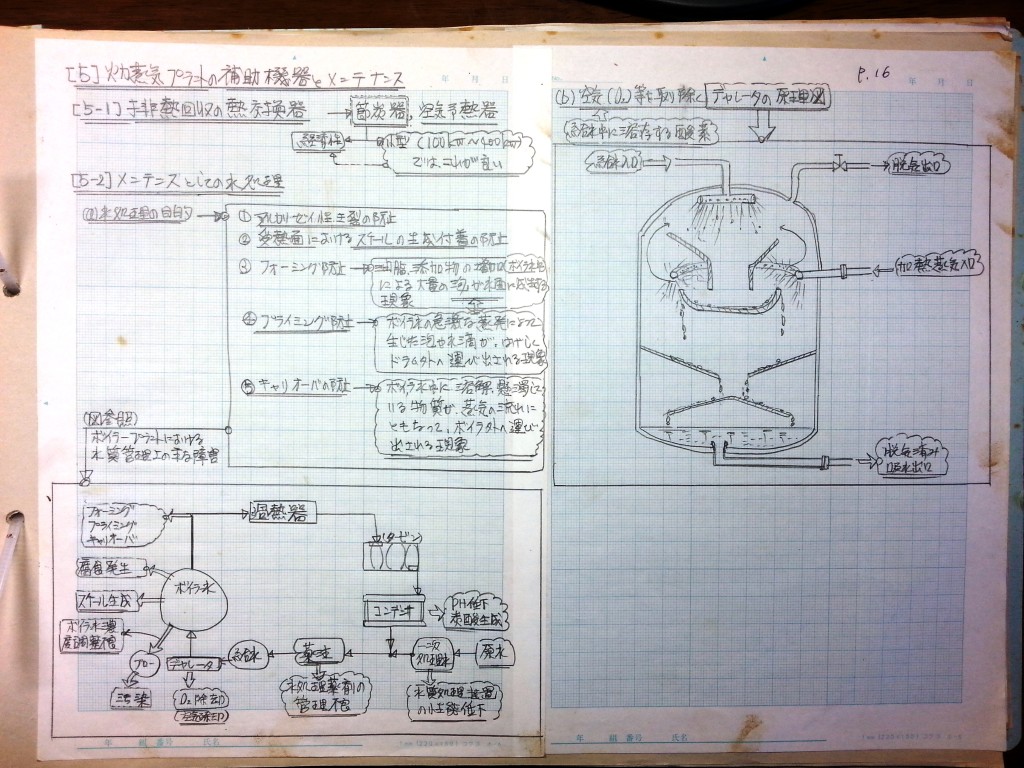 [5] 火力蒸気プラントの補助機器とメンテナンス
[5-1] 排熱回収の熱交換器 → 節炭器, 空気予熱器
経済性
小型 (100kw〜400kw)
ではこれが良い
[5-2] メンテナンスとしての水処理
(a) 水処理の目的
① アルカリぜい性き裂の防止
② 受熱面におけるスケールの生成付着の防止
③ フォーミング防止
油脂、添加物の増加
による大量の泡が水面に
現象
④ プライミング防止
ボイラ水の急激な蒸発によって
生じた泡や水滴が、はげしく
ドラム外へ運び出される現象
⑤ キャリオーバの防止
ボイラ水中に溶解、懸濁して
いる物質が、蒸気の流れに
ともなって、ボイラ外へ運び
出される現象
(図参照)
ボイラープラントにおける
水質管理上の主な障害
フォーミング
プライミング
キャリオーバ
過熱器
タービン
腐食発生
ボイラ水
スケール生成
コンデンサ
PH低下
炭酸生成
ボイラ水濃
度調整不良
ブロー
デヤレータ
給水
薬注
一次
処理水
原水
汚染
O2除却
水処理薬剤の
管理不良
水質処理装置
の性能低下
P. 16
(b) 空気(O2)等を取り除く デヤレータの原理図
給水中に溶存する酸素
給水入口
脱気出口
加熱蒸気入口
脱気済み
給水出口
年 組 番号 氏名
年 組 番号 氏名